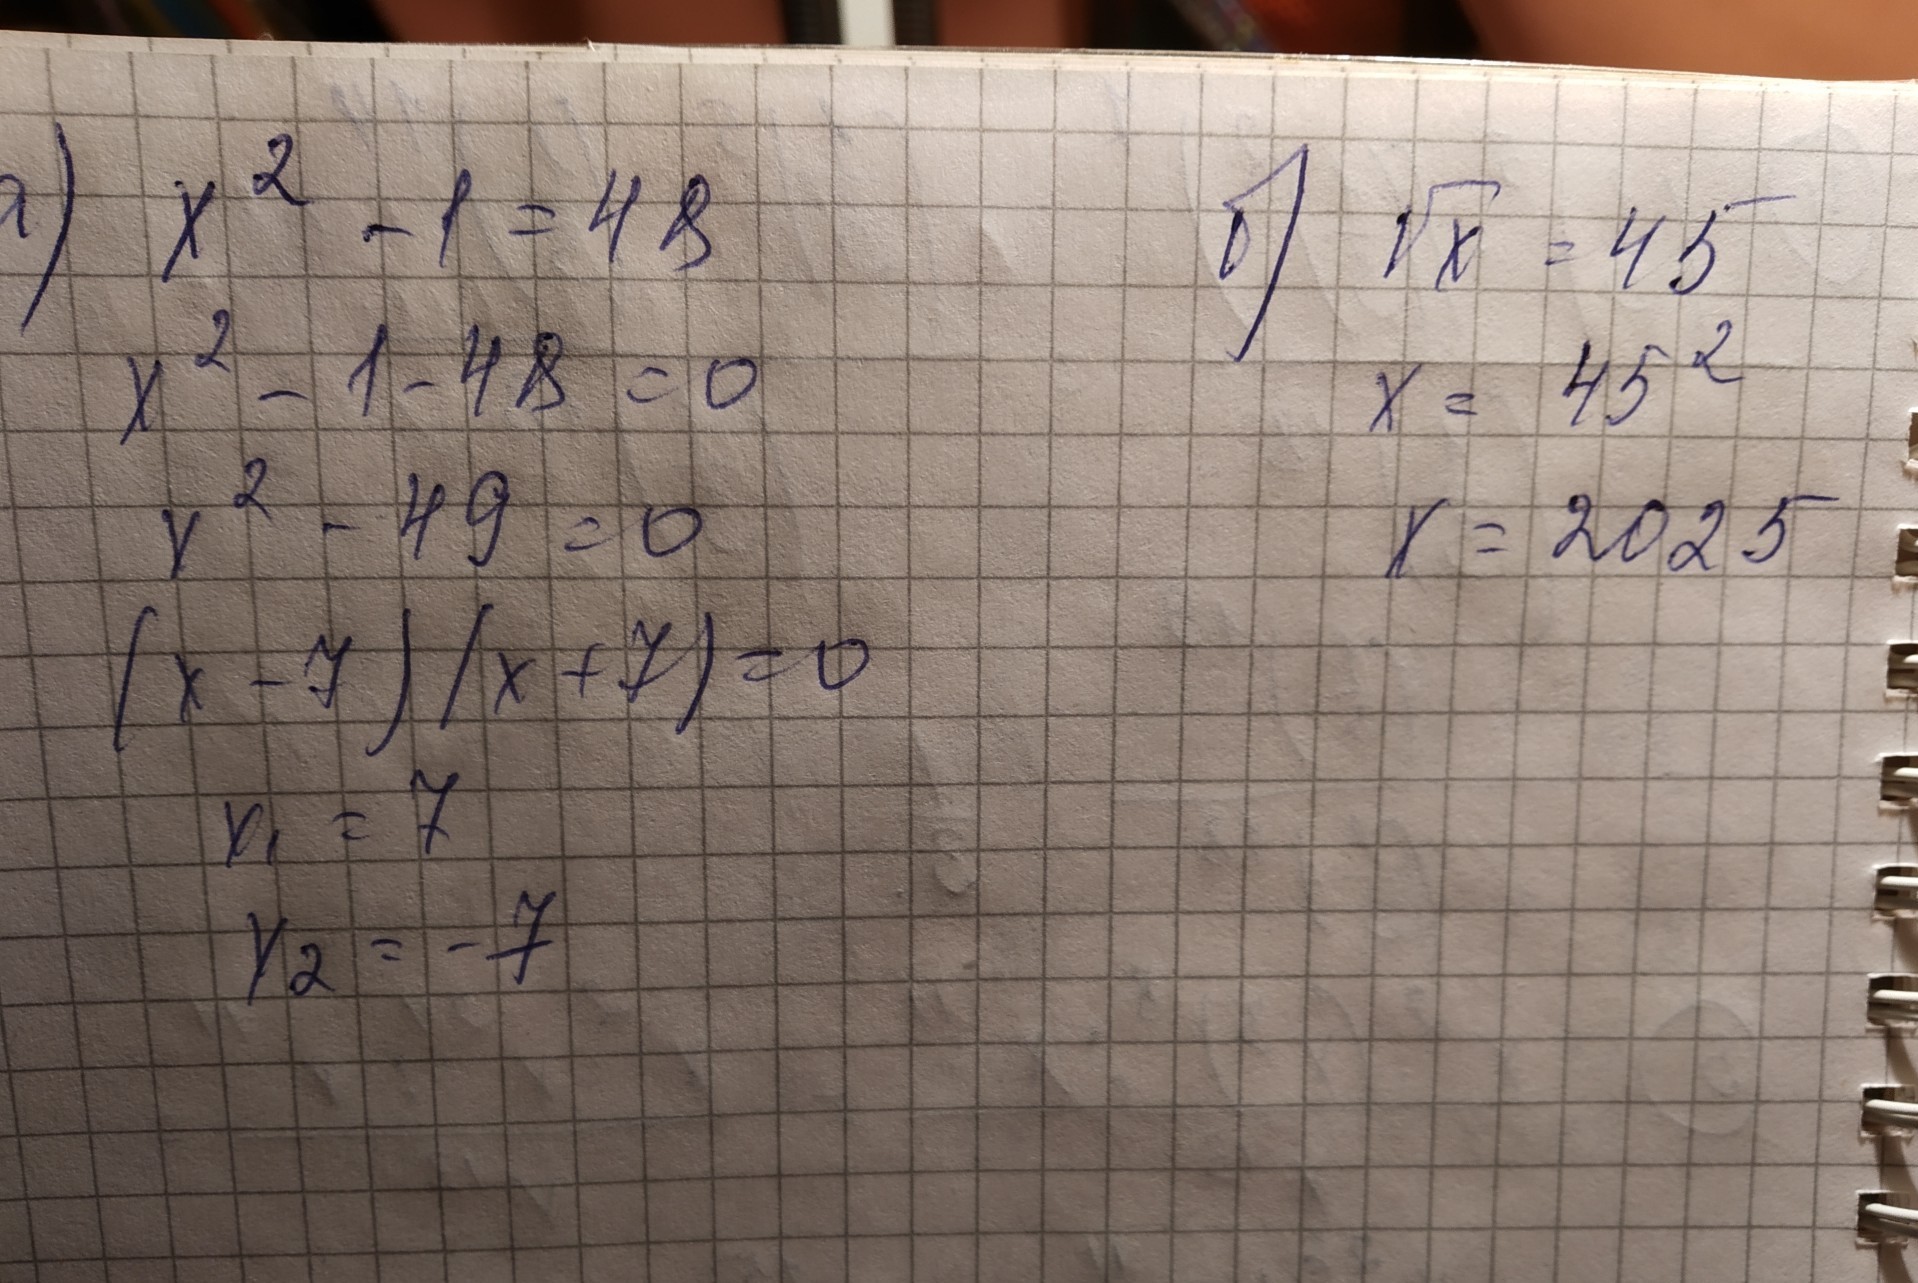 а) x² - 1 = 48
x² - 1 - 48 = 0
x² - 49 = 0
(x - 7)(x + 7) = 0
x₁ = 7
x₂ = -7
б) √x = 45
x = 45²
x = 2025